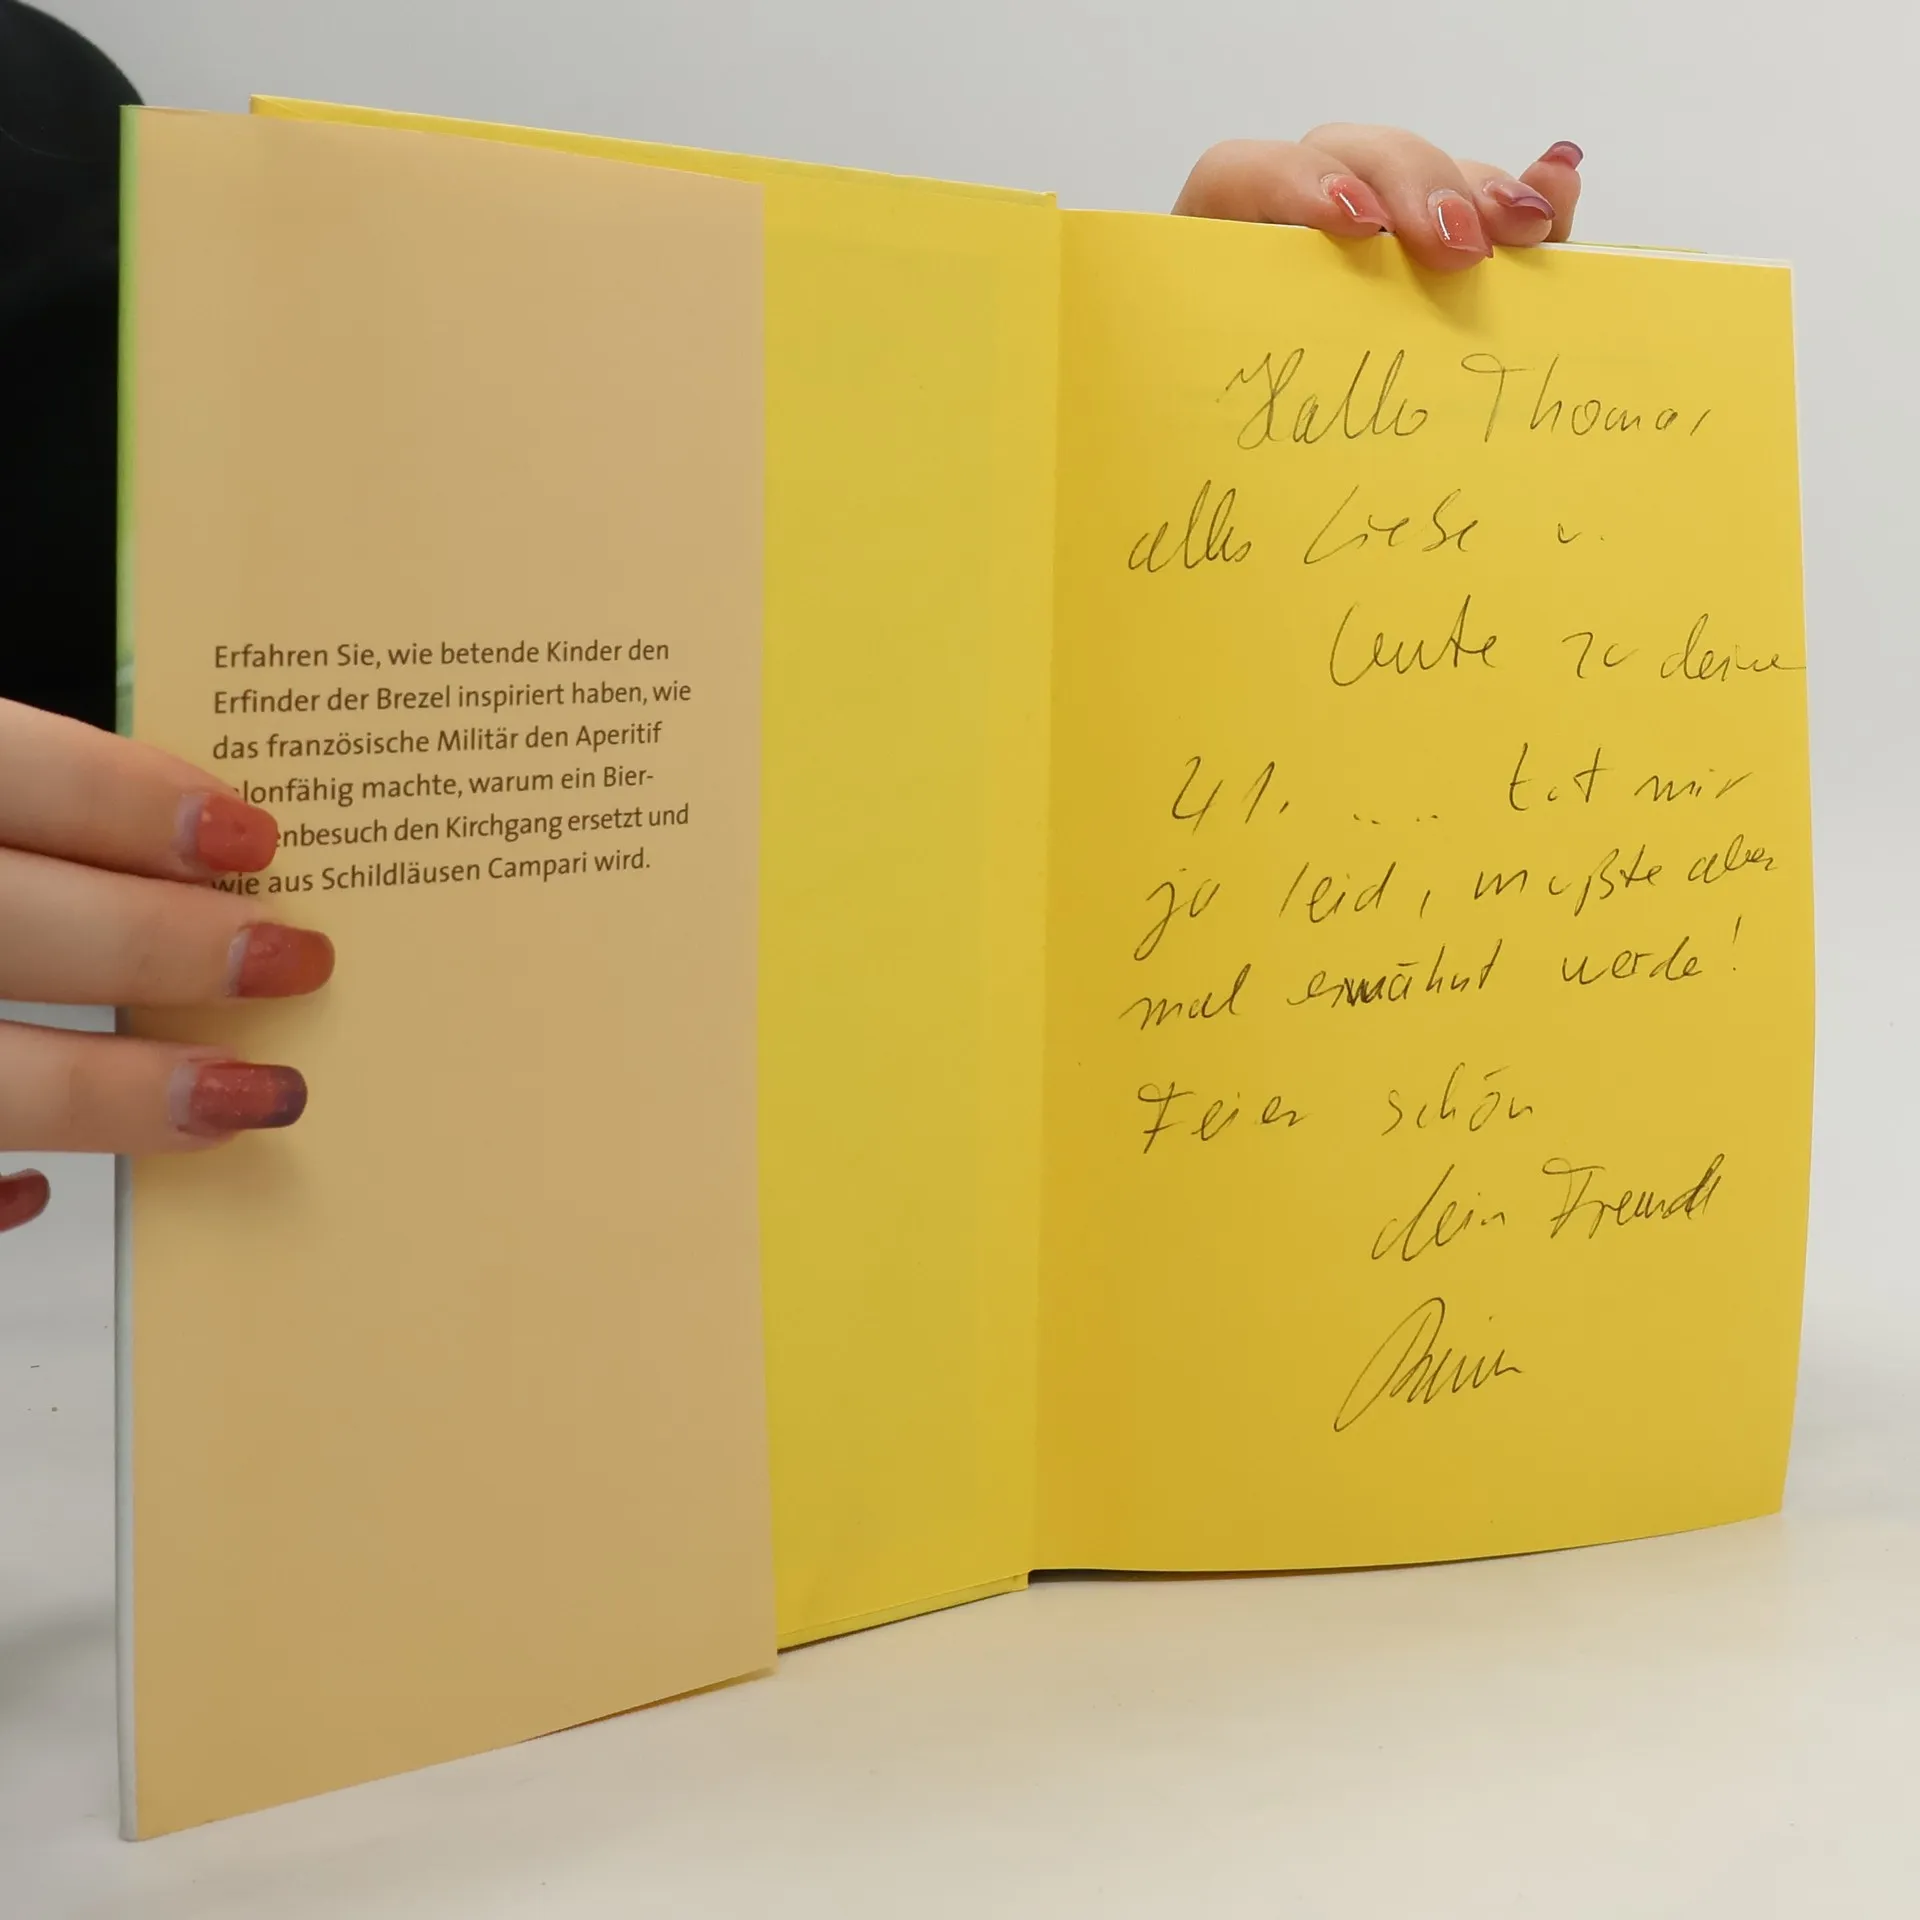 Erfahren Sie, wie betende Kinder den
Erfinder der Brezel inspiriert haben, wie
das französische Militär den Aperitif
lonfähig machte, warum ein Bier-
enbesuch den Kirchgang ersetzt und
wie aus Schildläusen Campari wird.
Hallo Thomas
alles Liebe u.
Gute zu deine
41. .... tut mir
ja leid, mußte aber
mal erwähnt werde!
Feier schön
dein Freund